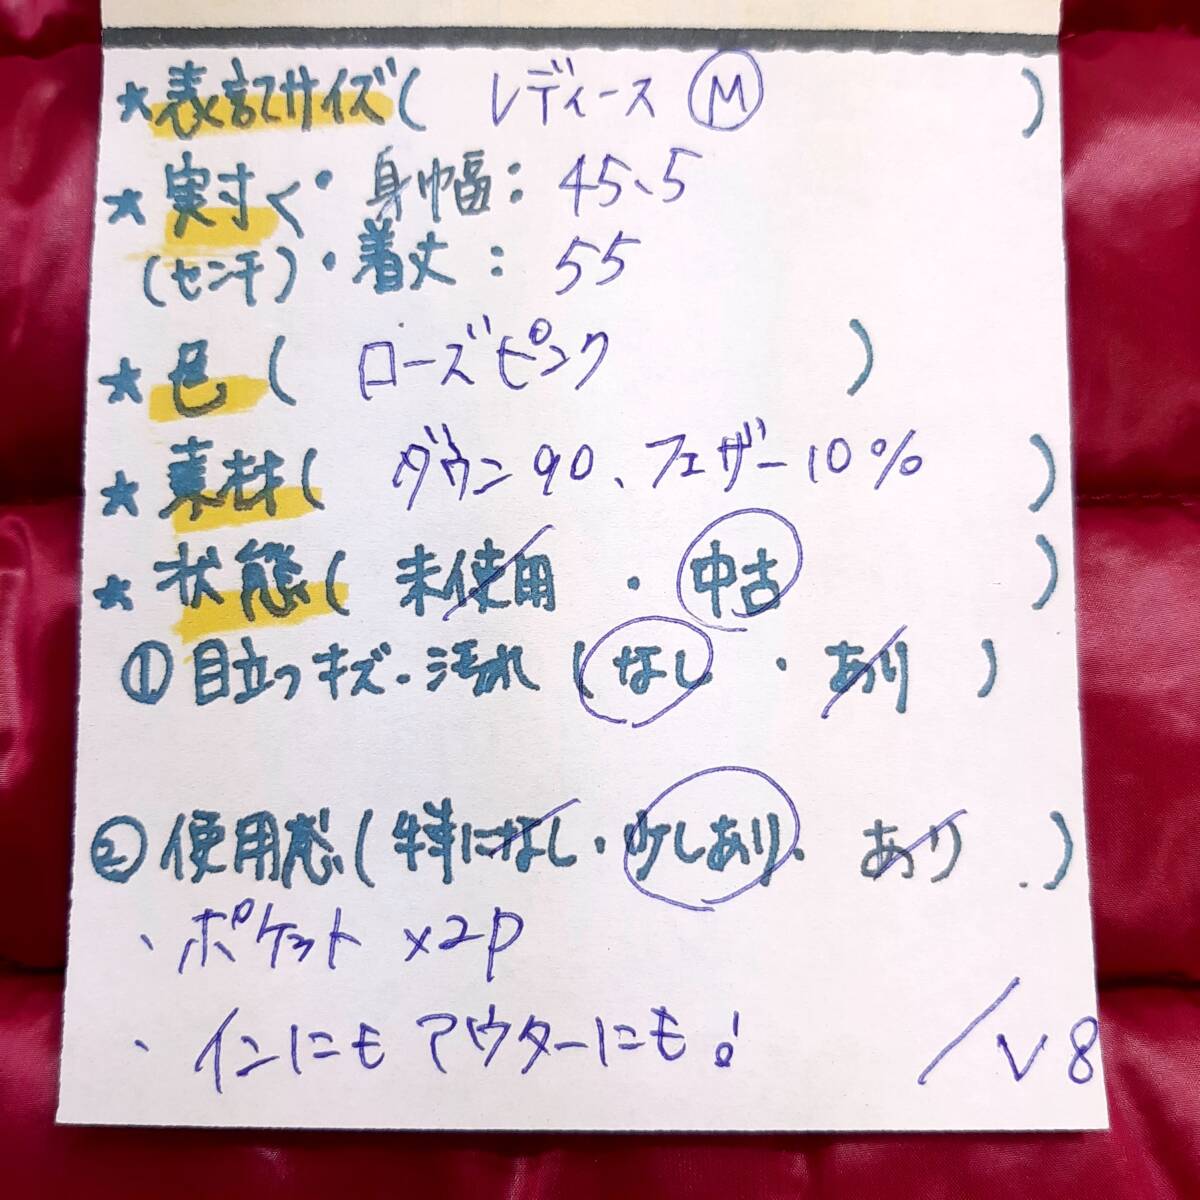 ★表記サイズ( レディース Ⓜ )
★実寸く・身幅：45、5
(センチ)・着丈：55
★色( ローズピンク )
★素材( ダウン90、フェザー10% )
★状態( 未使用・中古 )
①目立つキズ・汚れ(なし・あり)
②使用感(特になし・少しあり・あり.)
、ポケット×2P
、インにもアウターにも!
/V8